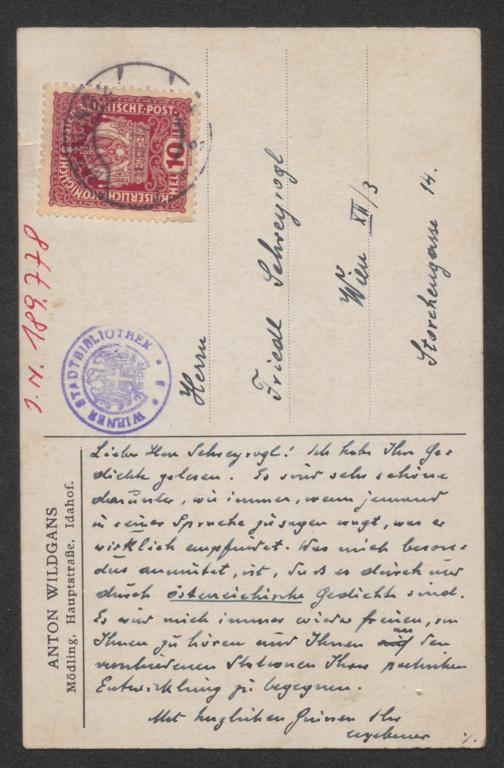 KAISERLICHE KÖNIGLICHE ÖSTERREICHISCHE POST
10 HELLER
J.N. 189.778
WIENER STADTBIBLIOTHEK
Herrn
Friedl Schreyvogl
Wien XII/3
Storchengasse 14.
ANTON WILDGANS
Mödling, Hauptstraße, Idahof.
Lieber Herr Schreyvogl! Ich habe Ihre Ge-
dichte gelesen. Es sind sehr schöne
darunter, wie immer, wenn jemand
in seiner Sprache zu sagen wagt, was er
wirklich empfindet. Was mich beson-
ders anmutet, ist, daß es durch und
durch österreichische Gedichte sind.
Es wird mich immer wieder freuen, von
Ihnen zu hören und Ihnen in den
verschiedenen Stationen Ihrer poetischen
Entwicklung zu begegnen.
Mit herzlichen Grüssen Ihr
ergebener ./.